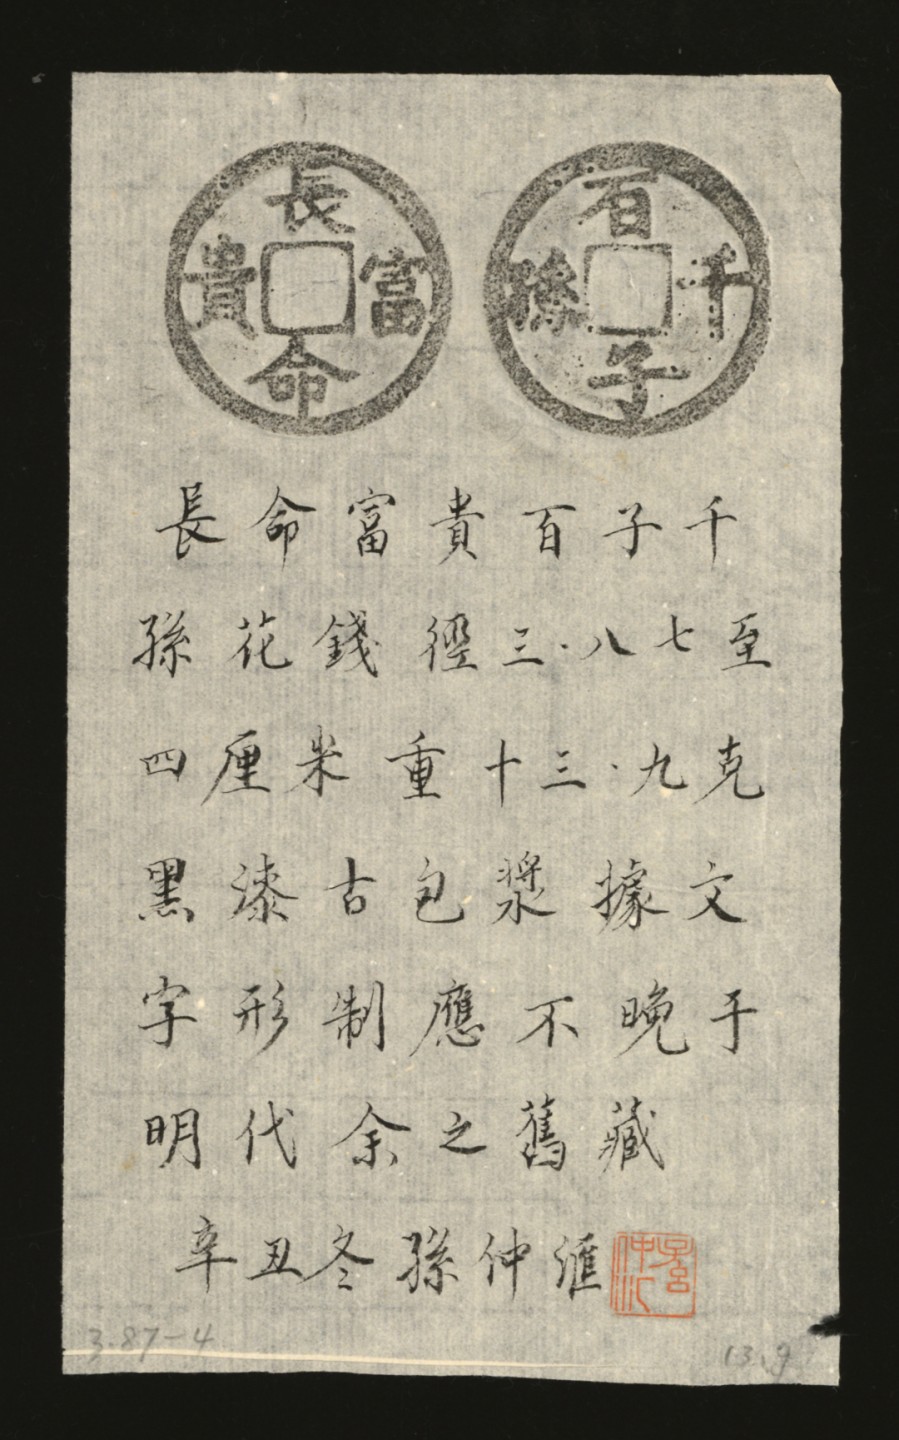 長命富貴
百子千孫
長命富貴百子千
孫花錢徑三·八七至
四厘米重十三·九克
黑漆古包漿據文
字形制應不晚于
明代余之舊藏
辛丑冬孫仲滙
孫仲汇
3.87-4
13.9